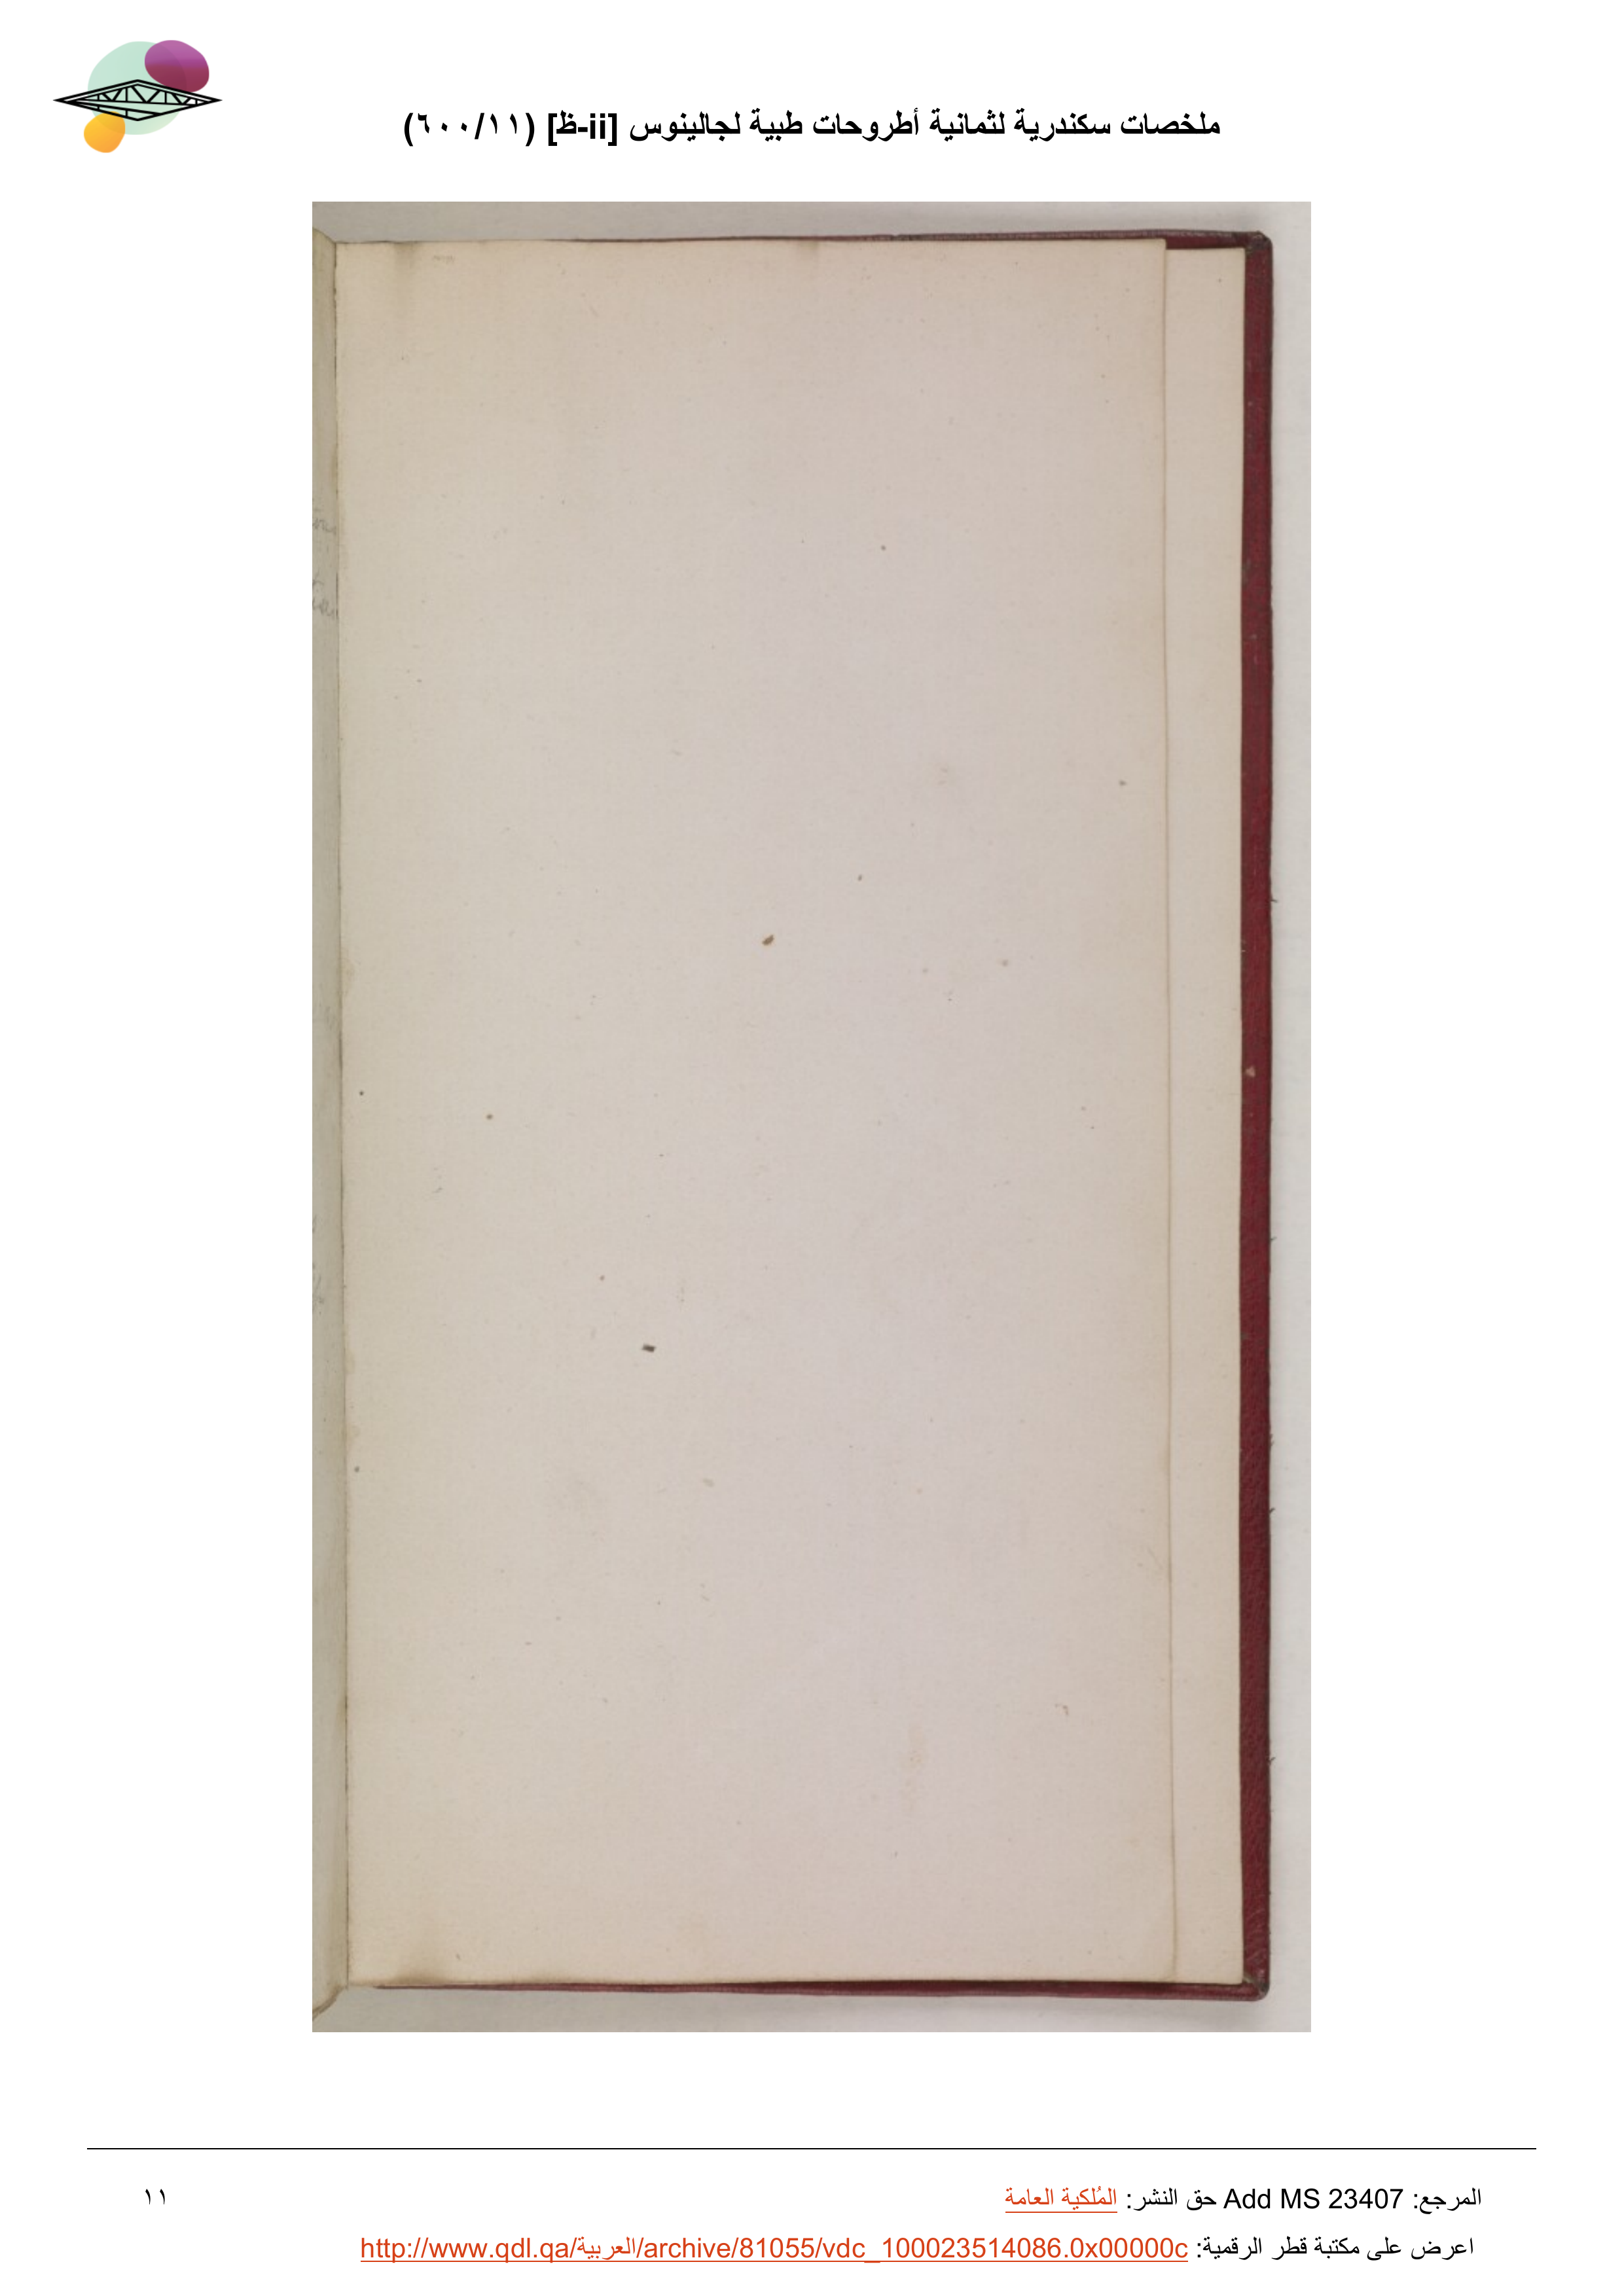 ملخصات سكندرية لثمانية أطروحات طبية لجالينوس [ii-ظ] (٦٠٠/١١)
المرجع: Add MS 23407 حق النشر: المُلكية العامة
١١
اعرض على مكتبة قطر الرقمية: http://www.qdl.qa/العربية/archive/81055/vdc_100023514086.0x00000c